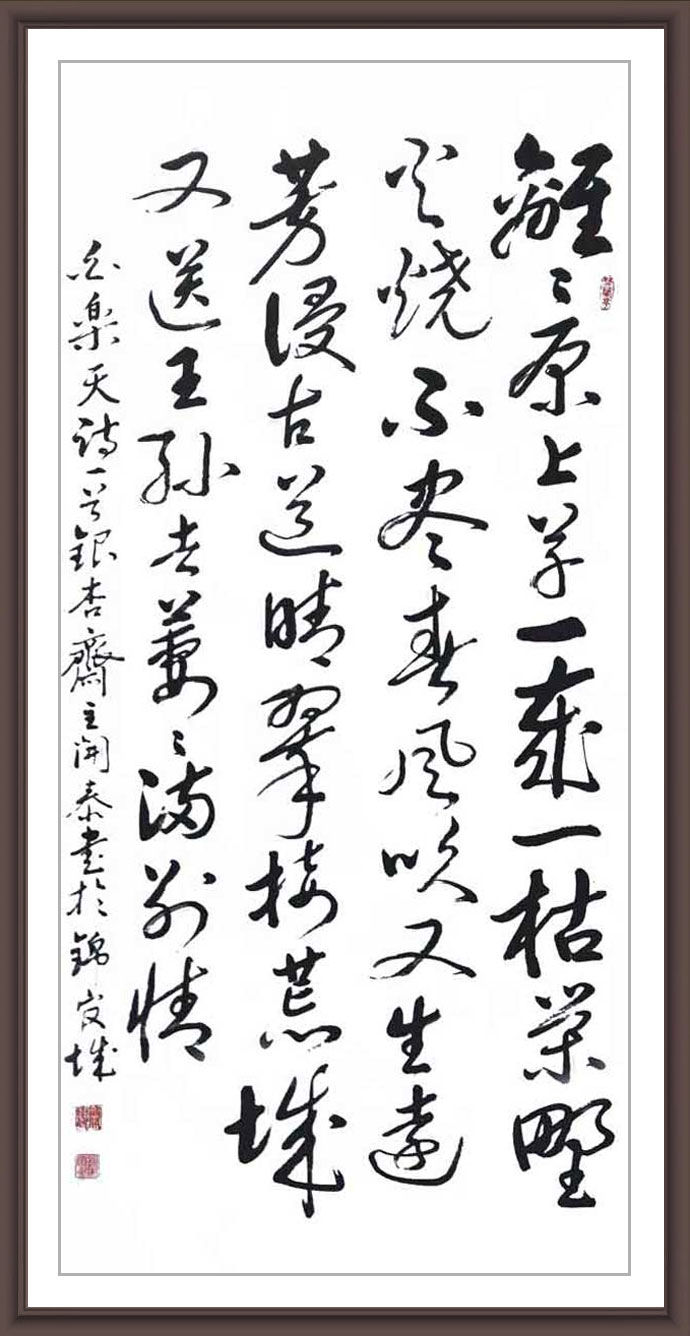 離〻原上草一歲一枯榮野
火燒不盡春風吹又生遠
芳侵古道晴翠接荒城
又送王孫去萋〻滿別情
白樂天詩一首銀杏齋主開泰書於錦官城